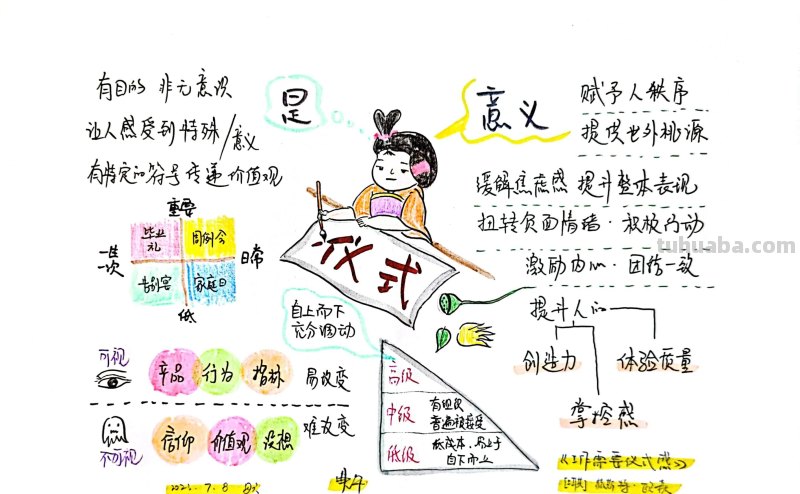 是
有目的 非无意识
让人感受到特殊/意义
有特定的符号传递价值观
重要
毕业礼
周例会
一生一次
日常
告别宴
家庭日
低
仪式
意义
赋予人秩序
提供世外桃源
缓解焦虑感 提升整体表现
扭转负面情绪·积极行动
激励内心·团结一致
tuhuaba.com
提升人的
创造力
体验质量
掌控感
自上而下
充分调动
可视
产品
行为
语林
易改变
不可视
信仰
价值观
设想
难改变
高级
中级
有组织
普遍被接受
低级
低成本、易上手
自下而上
《工作需要仪式感》